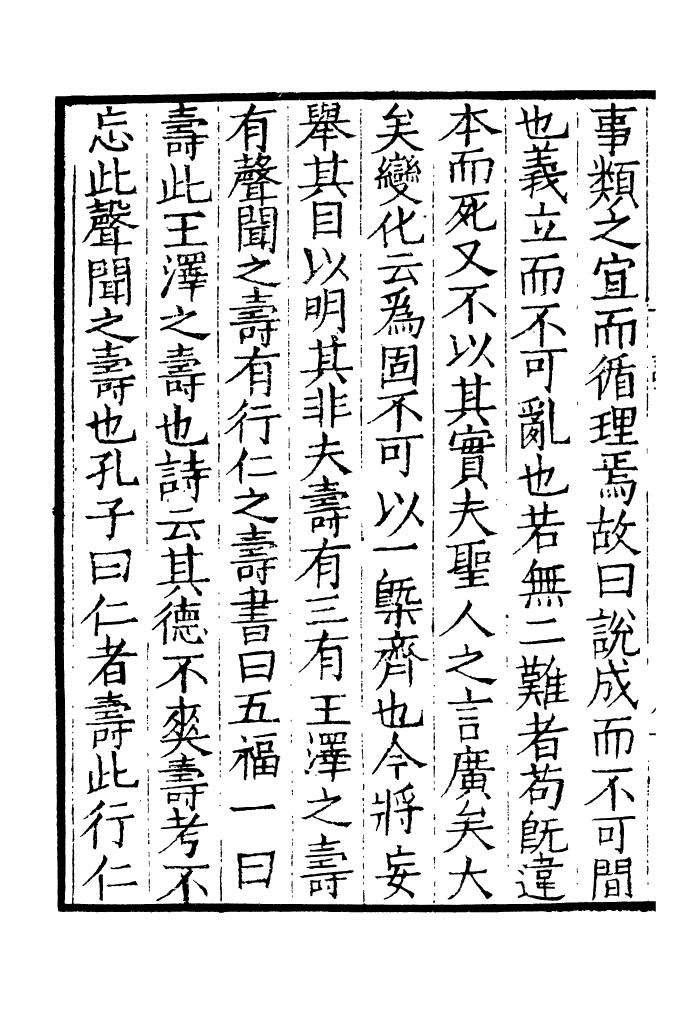 事類之宜而循理焉故曰說成而不可間
也義立而不可亂也若無二難者苟旣違
本而死又不以其實夫聖人之言廣矣大
矣變化云爲固不可以一槩齊也今將妄
舉其目以明其非夫壽有三有王澤之壽
有聲聞之壽有行仁之壽書曰五福一曰
壽此王澤之壽也詩云其德不爽壽考不
忘此聲聞之壽也孔子曰仁者壽此行仁